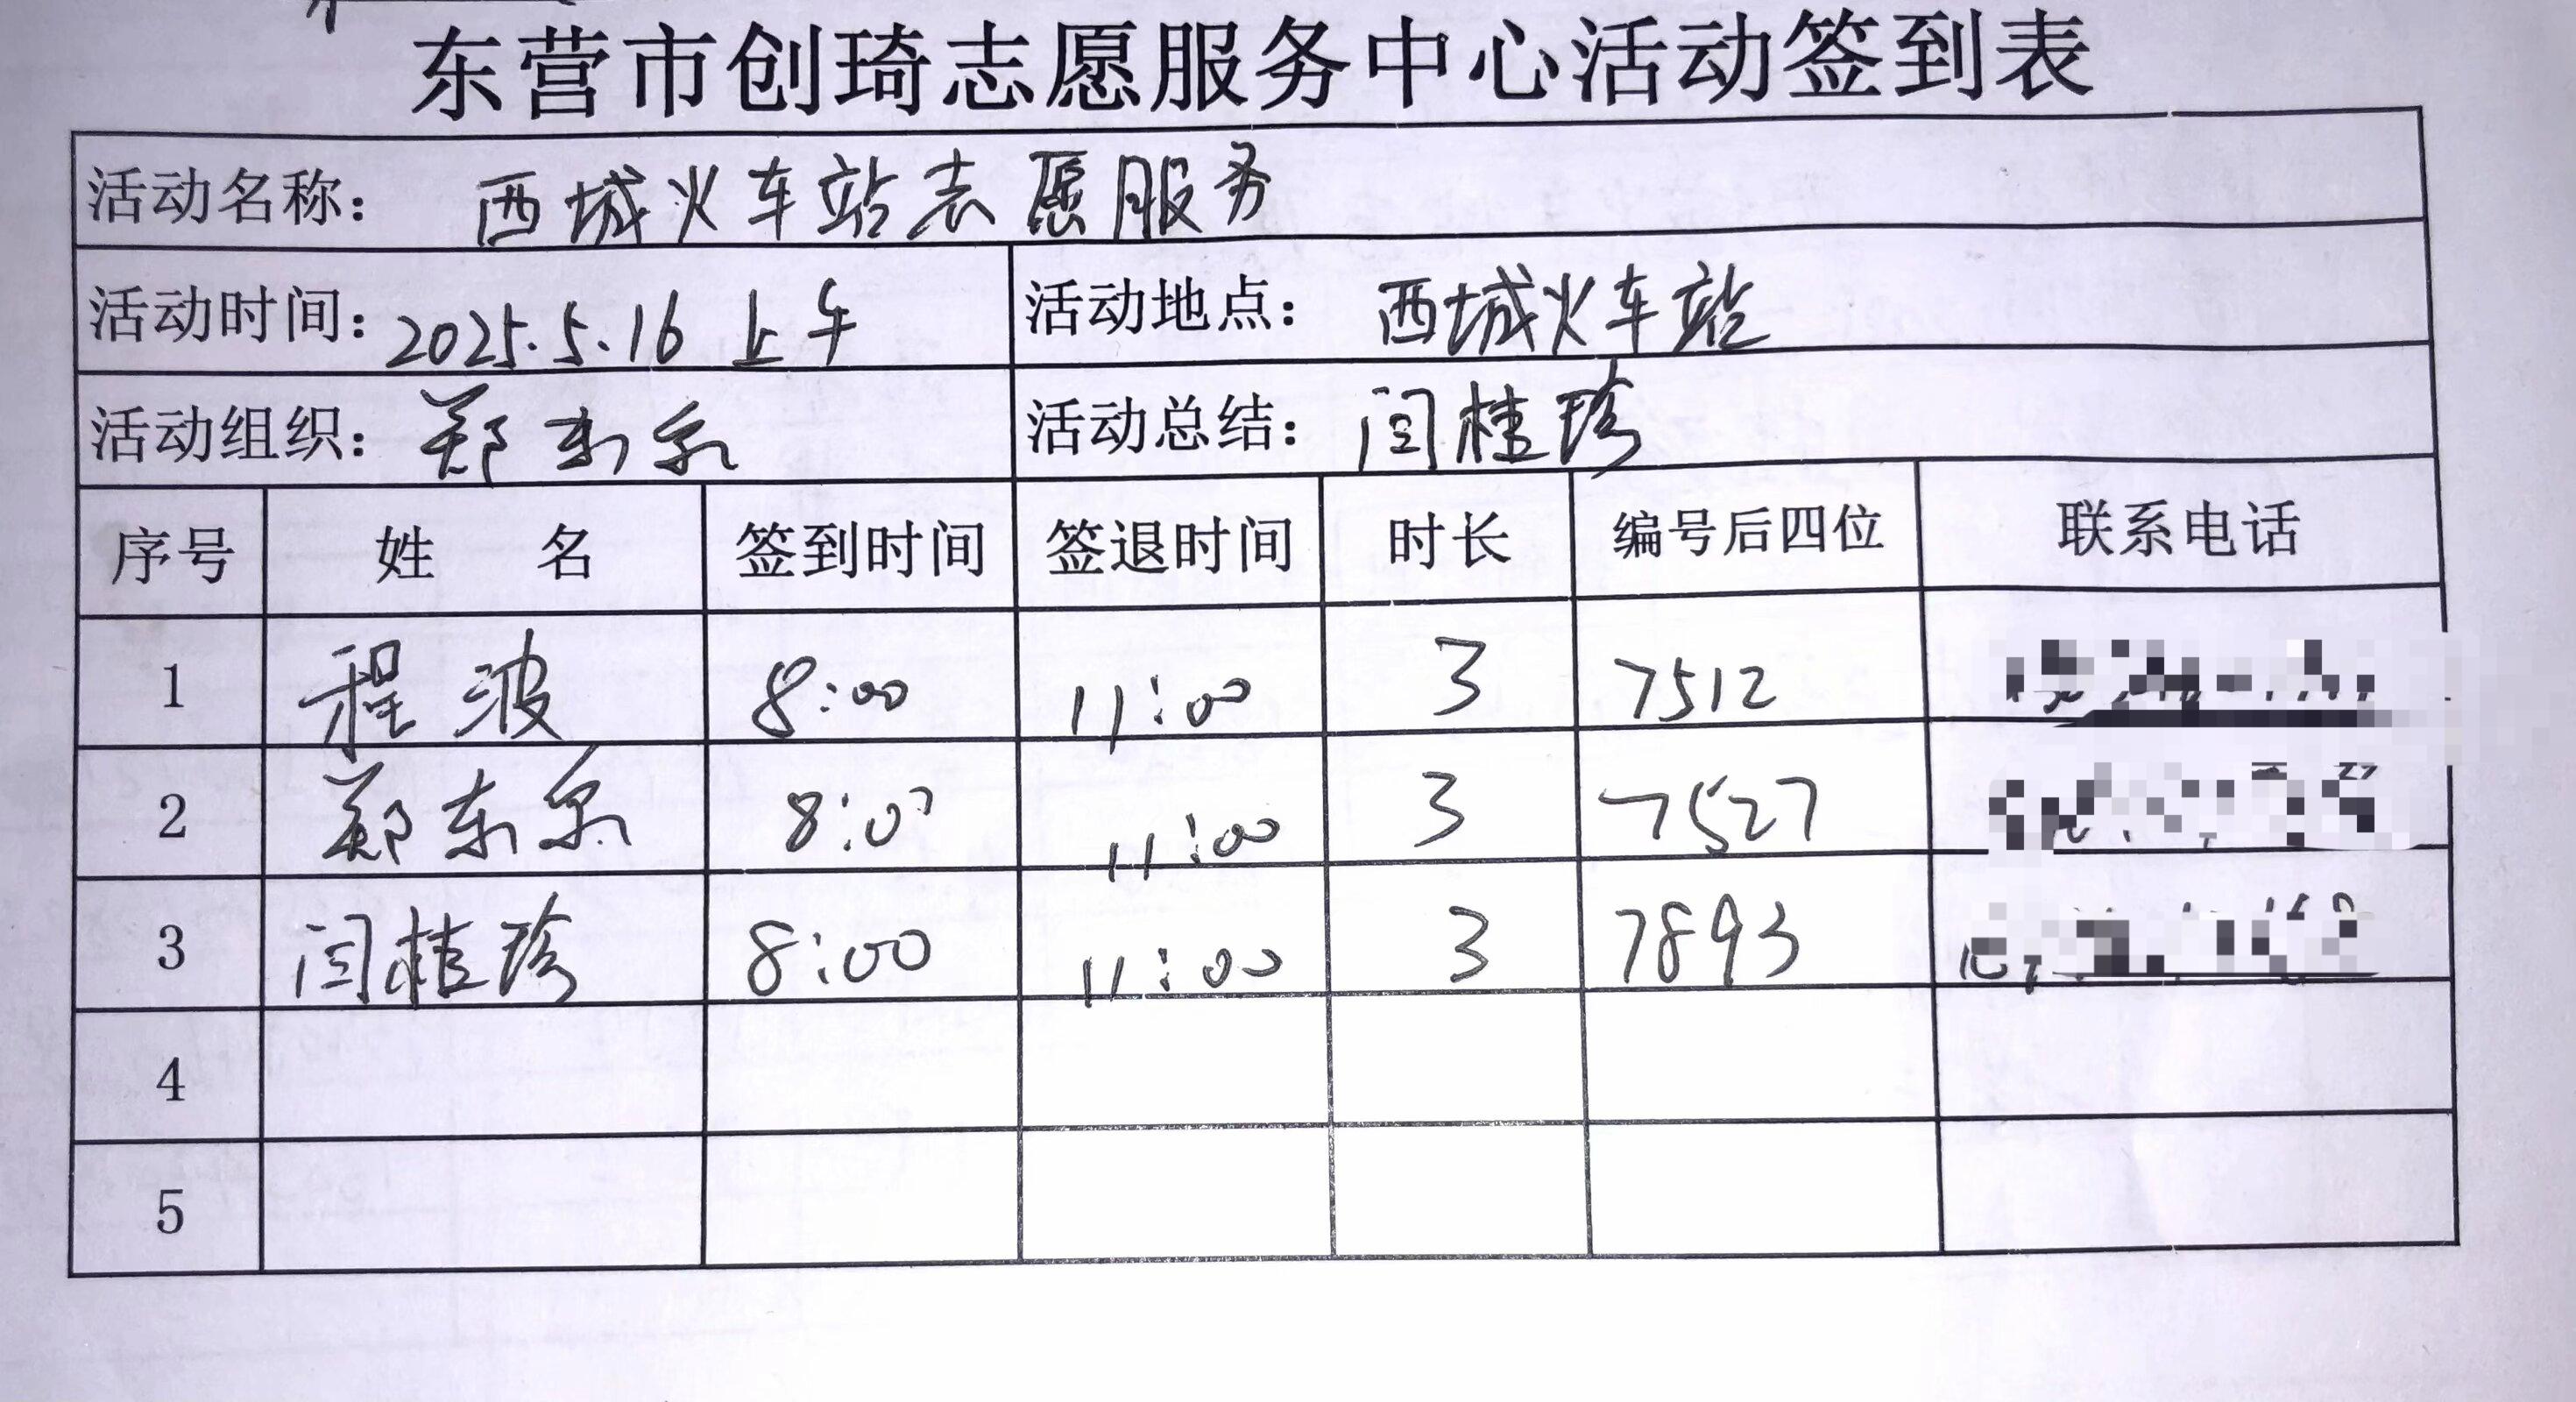 东营市创琦志愿服务中心活动签到表
活动名称： 西城火车站志愿服务
活动时间：2025.5.16 上午 活动地点： 西城火车站
活动组织：郑东 活动总结：闫桂珍
序号 姓 名 签到时间 签退时间 时长 编号后四位 联系电话
1 程波 8:00 11:00 3 7512
2 郑东 8:00 11:00 3 7527
3 闫桂珍 8:00 11:00 3 7893
4
5